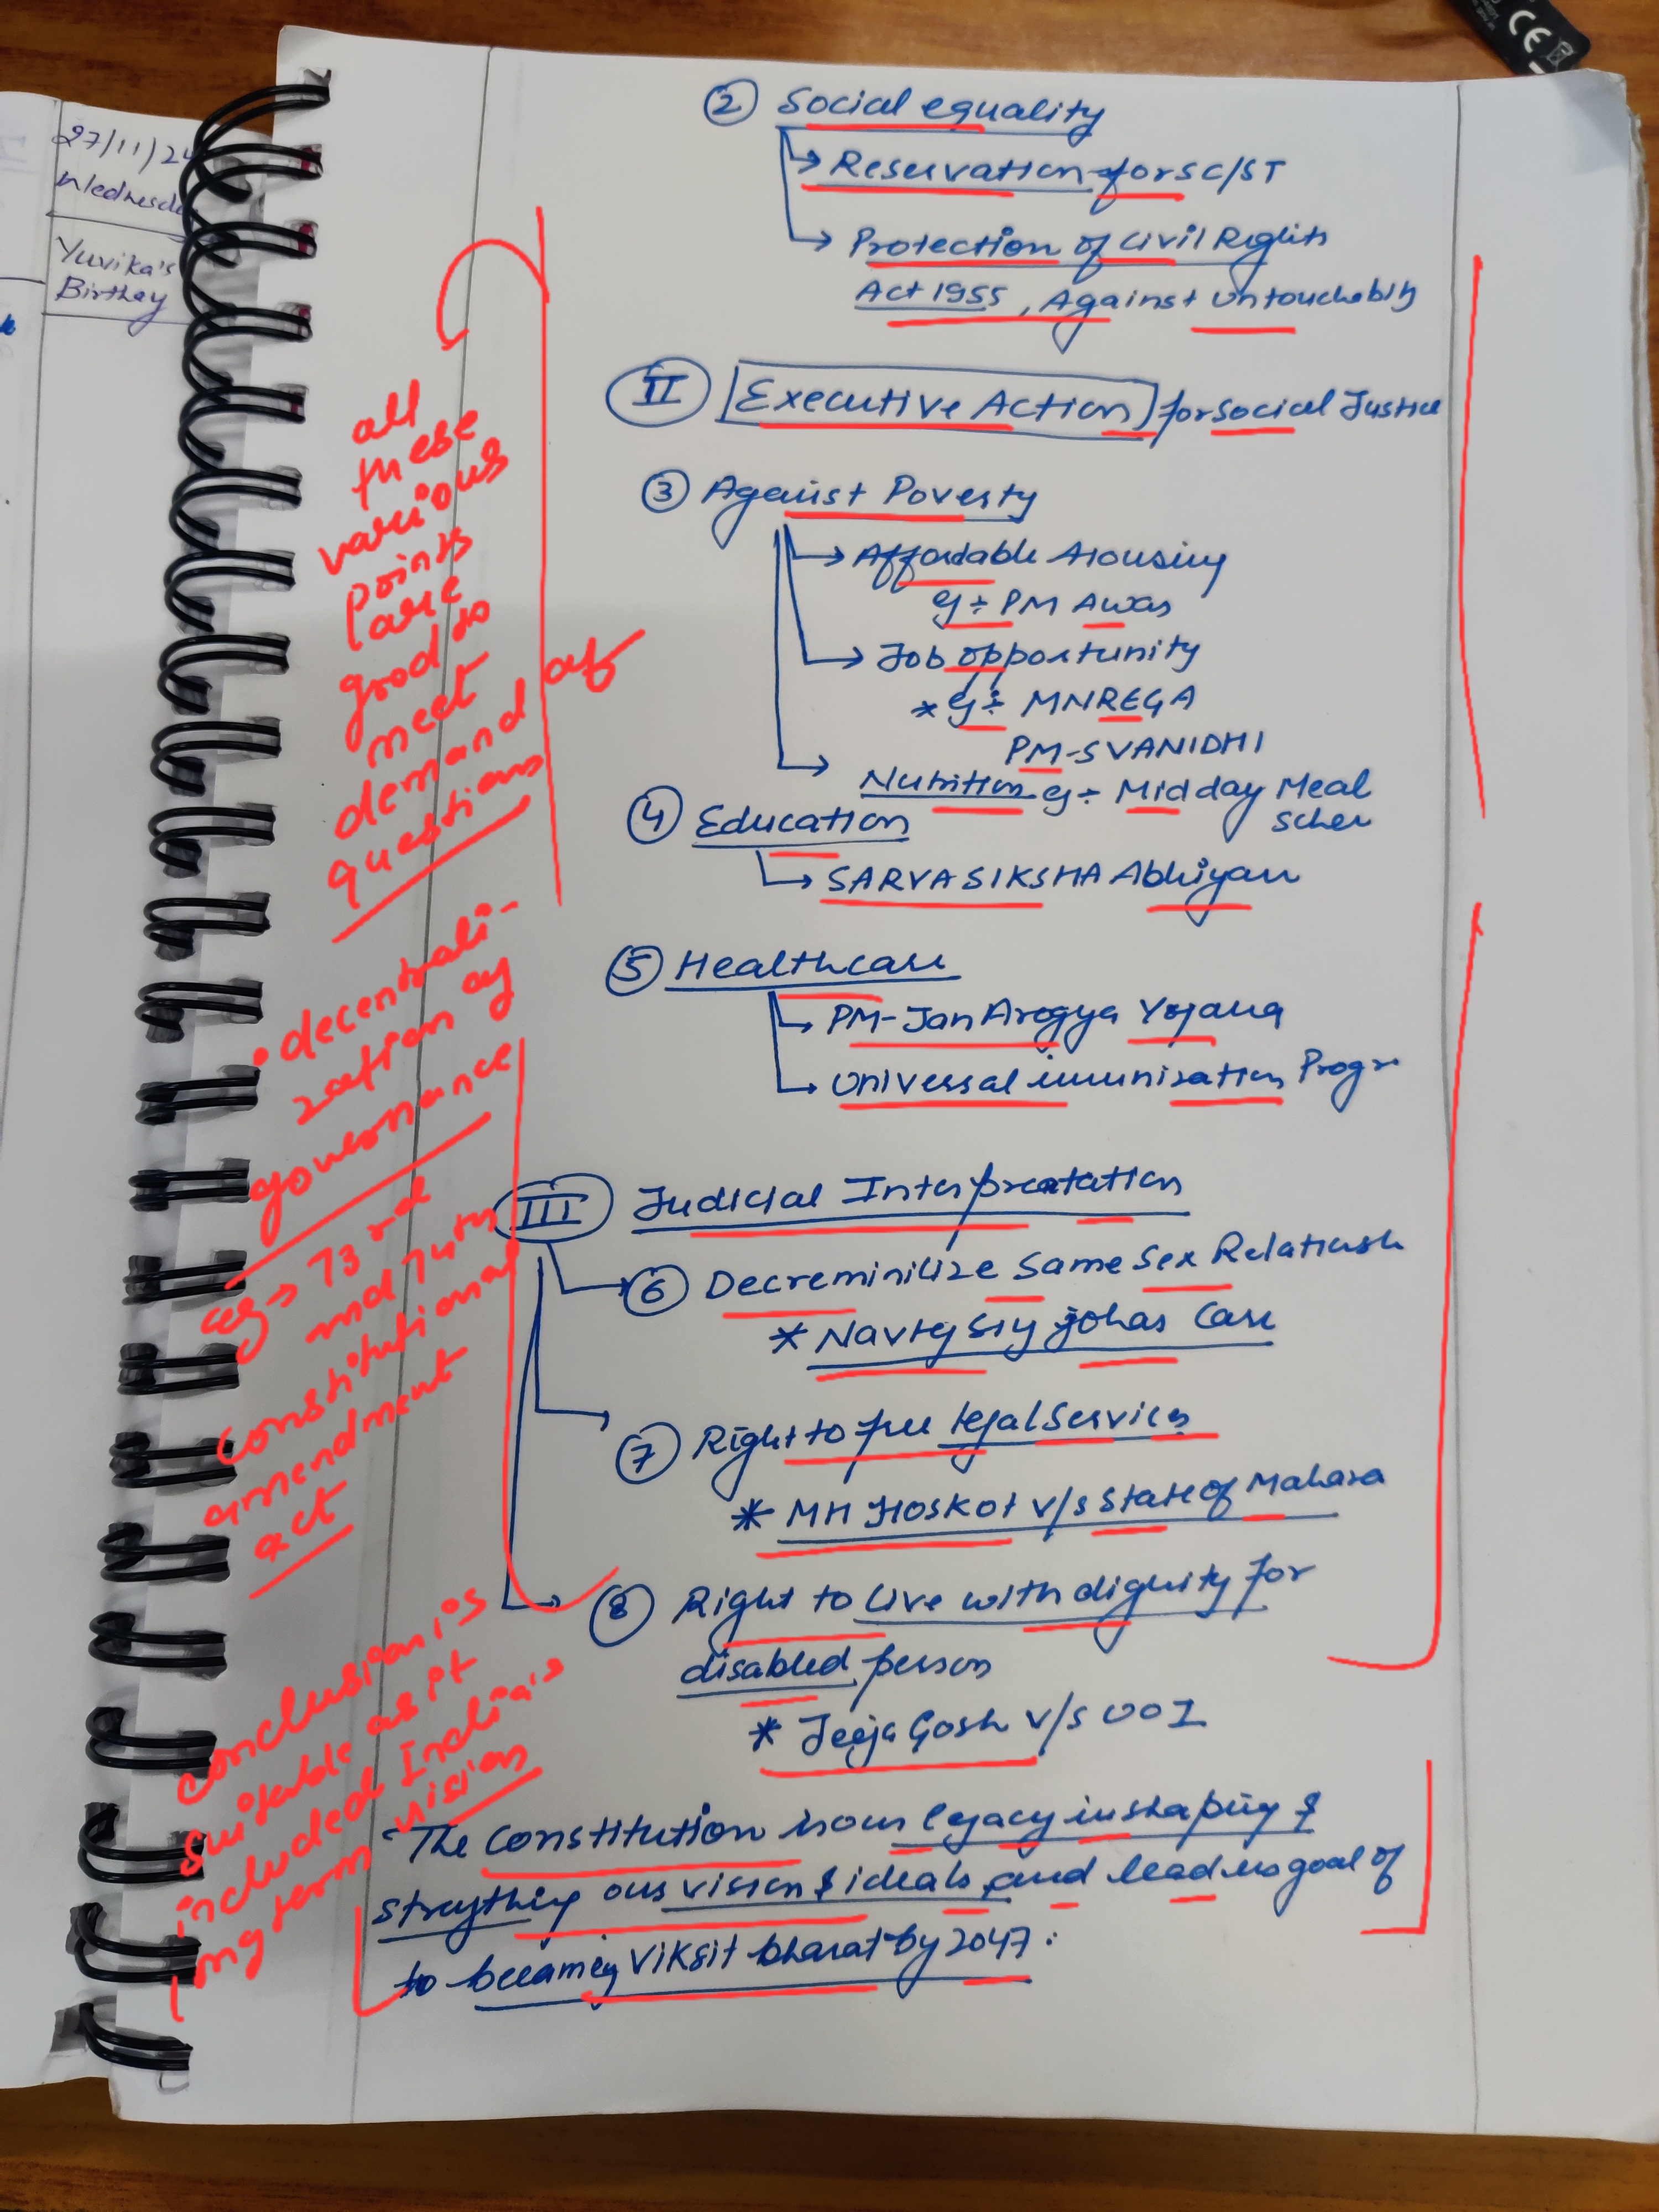 27/11/24
Wednesda
Yuvika's
Birthay
② Social equality
Reservation for SC/ST
Protection of Civil Rights
Act 1955, Against Untouchability
II Executive Action for Social Justice
③ Against Poverty
Affordable Housing
eg÷ PM Awas
Job opportunity
* eg÷ MNREGA
PM-SVANIDHI
Nutrition eg÷ Midday Meal
Schem
④ Education
SARVA SIKSHA Abhiyan
⑤ Healthcare
PM-Jan Arogya Yojana
Universal immunization Progr
III Judicial Interpreatation
⑥ Decreminilize Same Sex Relationsh
* Navtej Siy johas Case
⑦ Right to free legal Services
* MH Hoskot v/s State of Mahara
⑧ Right to live with dignity for
disabled person
* Jeeja Gosh v/s UOI
The Constitution is our legacy in shaping &
our vision & ideals and lead us goal of
to becaming Viksit bharat by 2047.
all
these
various
points
are
good to
meet
demand of
questions
• decentrali-
zation of
governance
eg → 73rd
and 74th
constitutional
amendment
act
conclusion is
suitable as it
included India's
long term vision